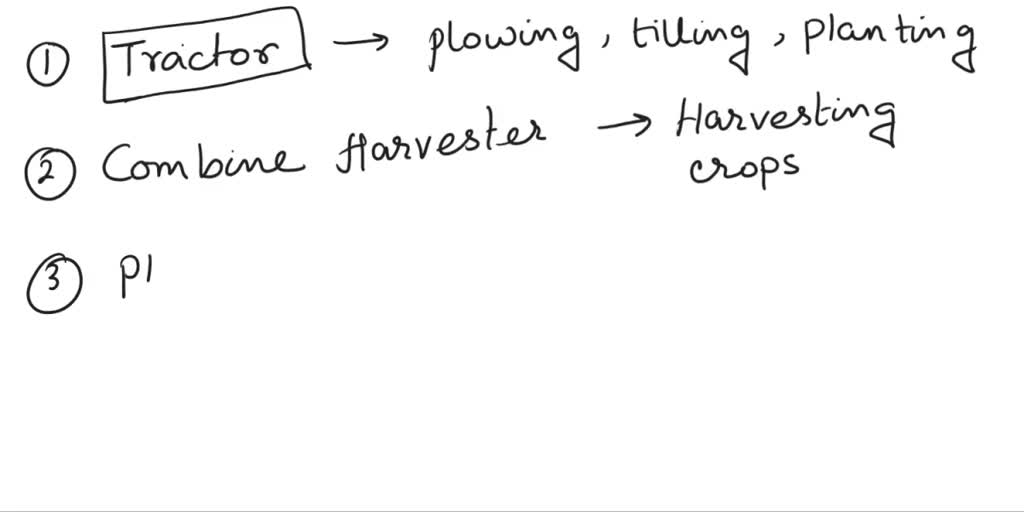 ① Tractor → plowing, tilling, planting
② Combine Harvester → Harvesting
crops
③ Pl